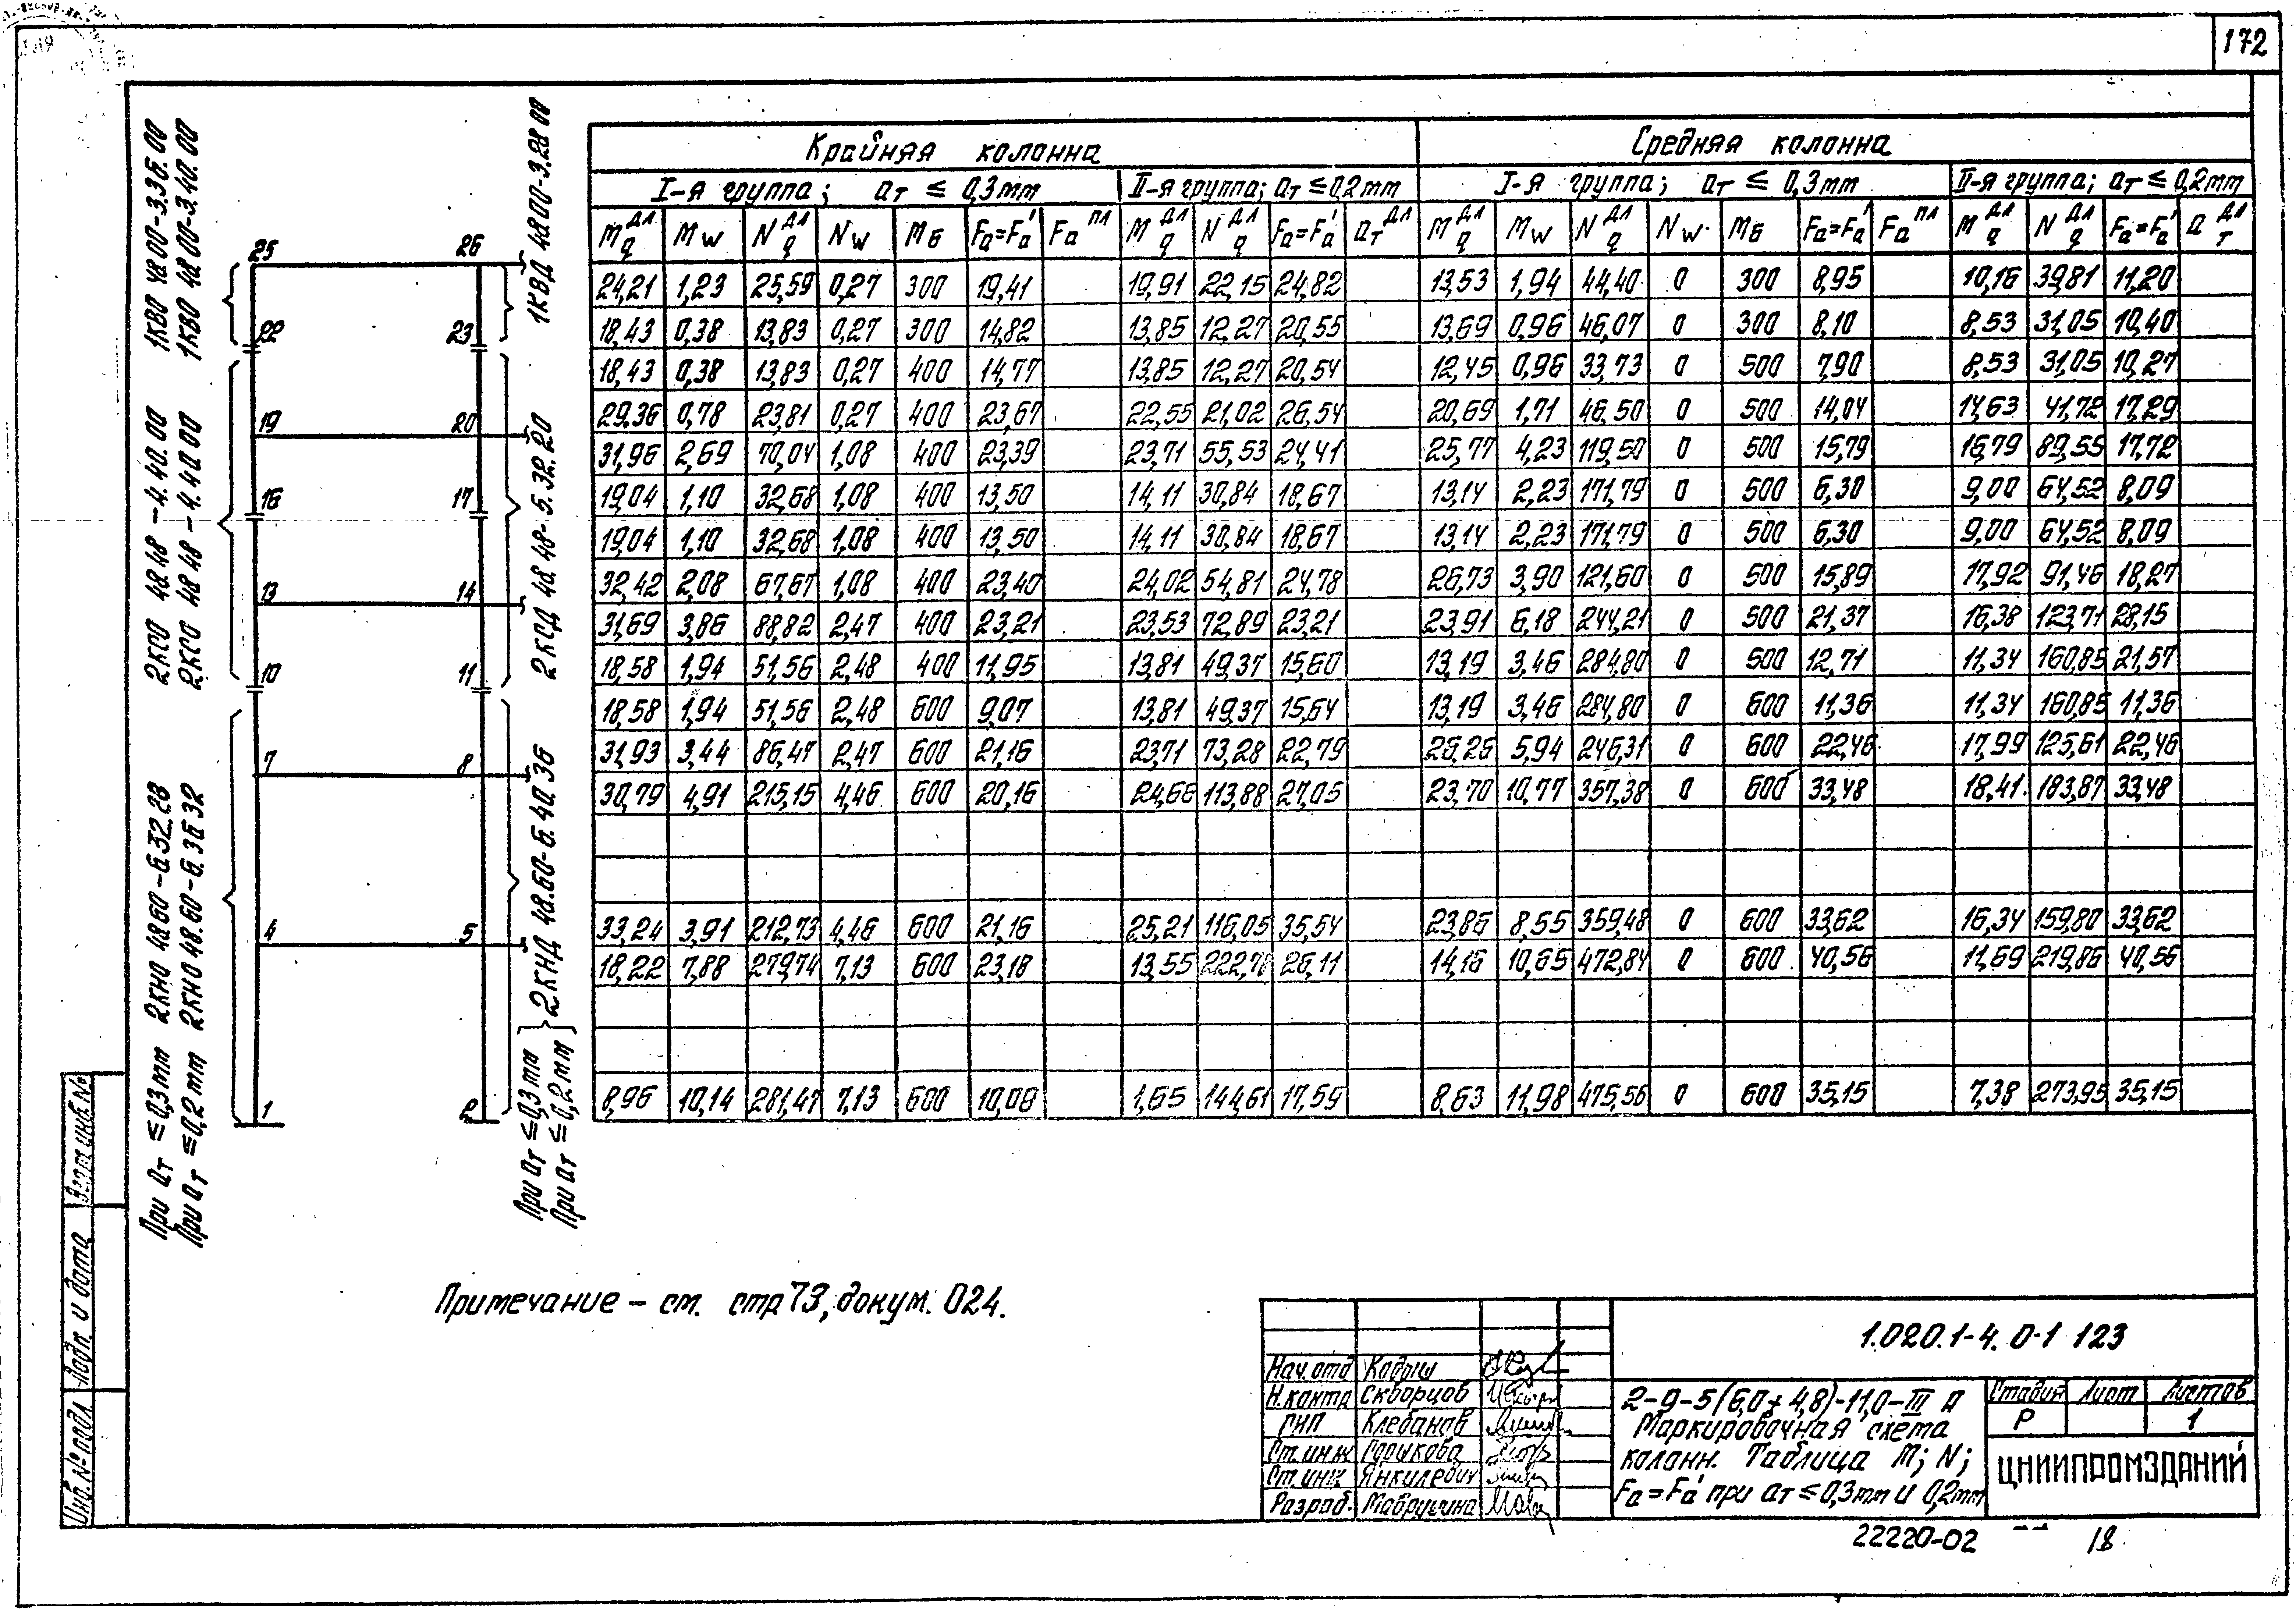 172
Крайняя колонна
Средняя колонна
I-я группа; aт ≤ 0,3mm
II-я группа; aт ≤ 0,2mm
I-я группа; aт ≤ 0,3mm
II-я группа; aт ≤ 0,2mm
Mqдл Mw Nqдл Nw Mб Fa=Fa' Faпл Mqдл Nqдл Fa=Fa' aтдл Mqдл Mw Nqдл Nw Mб Fa=Fa' Faпл Mqдл Nqдл Fa=Fa' aтдл
24,21 1,23 25,59 0,27 300 19,41 19,91 22,15 24,82 13,53 1,94 44,40 0 300 8,95 10,16 39,81 11,20
18,43 0,38 13,83 0,27 300 14,82 13,85 12,27 20,55 13,69 0,96 46,07 0 300 8,10 8,53 31,05 10,40
18,43 0,38 13,83 0,27 400 14,77 13,85 12,27 20,54 12,45 0,96 33,73 0 500 7,90 8,53 31,05 10,27
29,36 0,78 23,81 0,27 400 23,67 22,55 21,02 26,54 20,69 1,71 46,50 0 500 14,04 14,63 41,72 17,29
31,96 2,69 70,04 1,08 400 23,39 23,71 55,53 24,41 25,77 4,23 119,50 0 500 15,79 16,79 89,55 17,72
19,04 1,10 32,68 1,08 400 13,50 14,11 30,84 18,67 13,14 2,23 171,79 0 500 6,30 9,00 64,52 8,09
19,04 1,10 32,68 1,08 400 13,50 14,11 30,84 18,67 13,14 2,23 171,79 0 500 6,30 9,00 64,52 8,09
32,42 2,08 67,67 1,08 400 23,40 24,02 54,81 24,78 26,73 3,90 121,60 0 500 15,89 17,92 91,46 18,27
31,69 3,86 88,82 2,47 400 23,21 23,53 72,89 23,21 23,91 6,18 244,21 0 500 21,37 16,38 123,71 28,15
18,58 1,94 51,56 2,48 400 11,95 13,81 49,37 15,60 13,19 3,46 284,80 0 500 12,71 11,34 160,85 21,57
18,58 1,94 51,56 2,48 600 9,07 13,81 49,37 15,64 13,19 3,46 284,80 0 600 11,36 11,34 160,85 11,36
31,93 3,44 86,47 2,47 600 21,16 23,71 73,28 22,79 26,26 5,94 246,31 0 600 22,46 17,99 125,61 22,46
30,79 4,91 215,15 4,46 600 20,16 24,66 113,88 27,05 23,70 10,77 357,38 0 600 33,48 18,41 183,87 33,48
33,24 3,91 212,73 4,46 600 21,16 25,21 116,05 35,54 23,86 8,55 359,48 0 600 33,62 16,34 159,80 33,62
18,22 7,88 279,74 7,13 600 23,18 13,55 222,78 26,11 14,16 10,65 472,84 0 600 40,56 11,69 219,86 40,56
8,96 10,14 281,47 7,13 600 10,06 1,65 144,61 17,59 8,63 11,98 475,56 0 600 35,15 7,38 273,95 35,15
1КВО 48.00-3.36.00
1КВО 48.00-3.40.00
2КСО 48.48-4.40.00
2КСО 48.48-4.40.00
При aт ≤ 0,3mm 2КНО 48.60-6.32.28
При aт ≤ 0,2mm 2КНО 48.60-6.36.32
25 26
22 23
19 20
16 17
13 14
10 11
7 8
4 5
1 2
1КВД 48.00-3.28.00
2КСД 48.48-5.32.20
2КНД 48.60-6.40.36
При aт ≤ 0,3mm
При aт ≤ 0,2mm
Примечание – см. стр 73, докум. 024.
1.020.1-4. 0-1 123
2-9-5(6,0+4,8)-11,0-III А
Маркировочная схема
колонн. Таблица M; N;
Fa=Fa' при aт ≤ 0,3mm и 0,2mm
Стадия Лист Листов
Р 1
ЦНИИПРОМЗДАНИЙ
Нач.отд Кодыш
Н.контр Скворцов
ГИП Клебанов
Ст.инж Горшкова
Ст.инж Янкилевич
Разраб. Маврушина
Взам.инв.№
Подп. и дата
Инв.№ подл.
22220-02 18